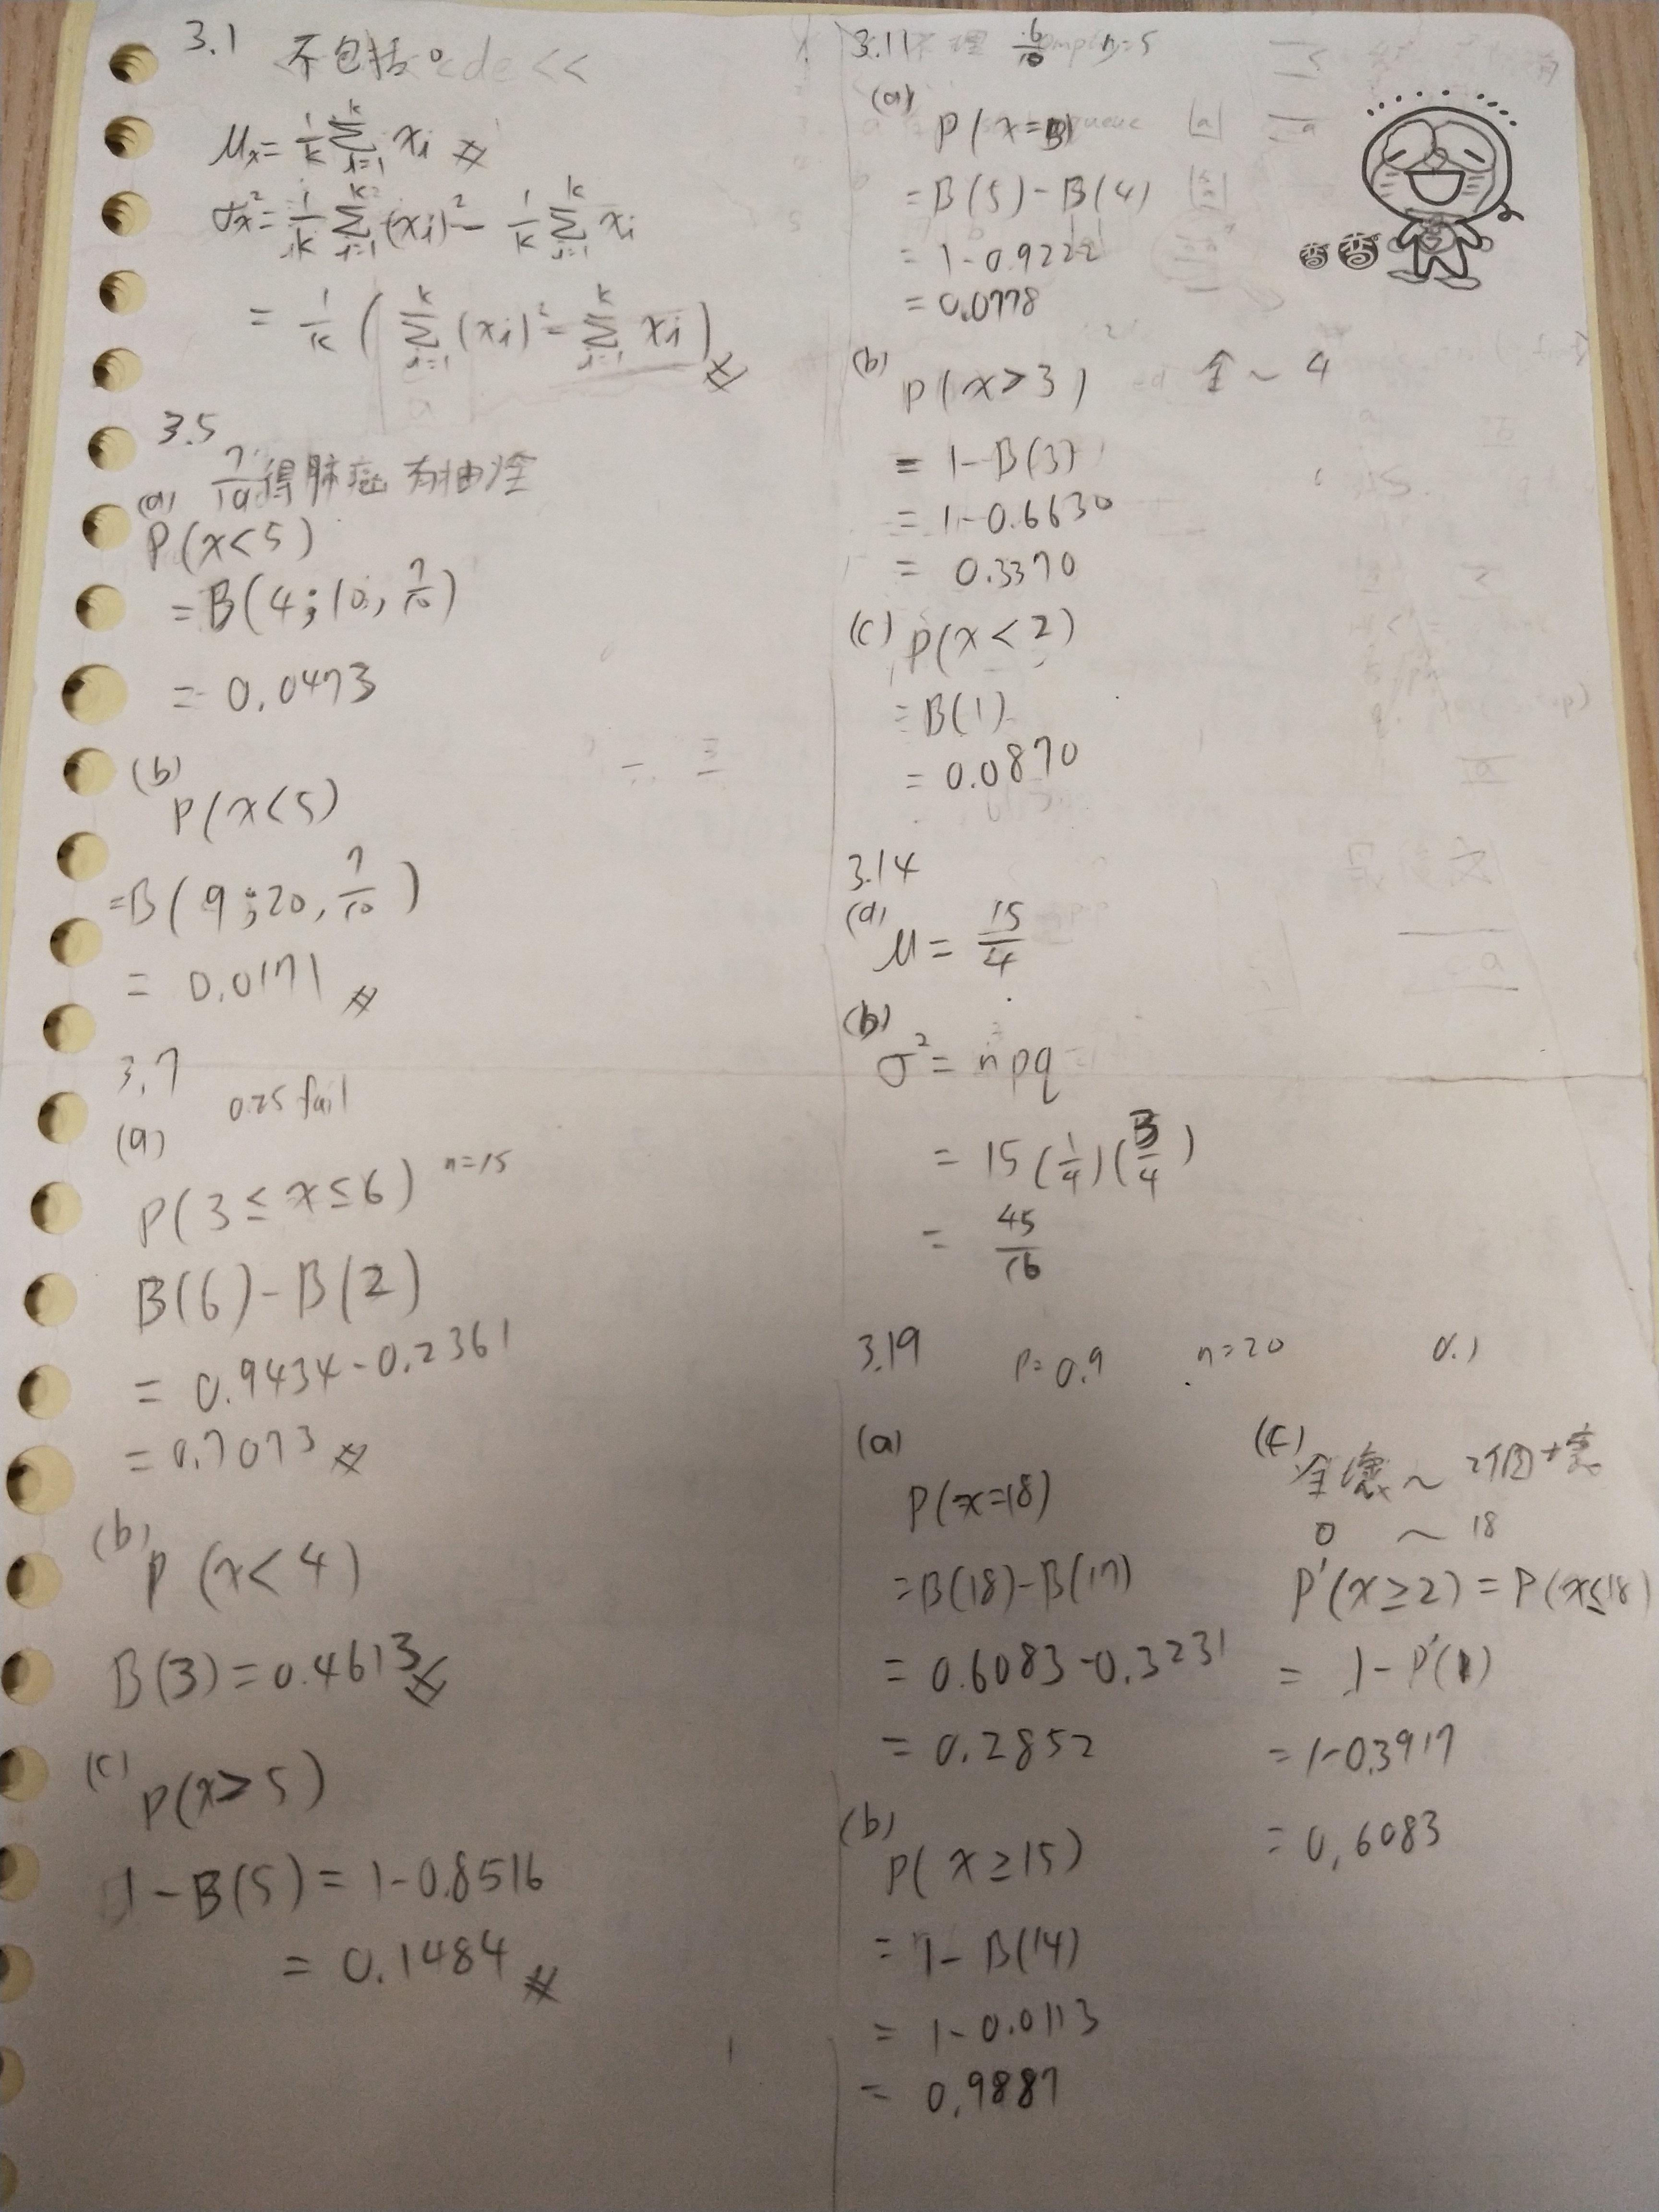 3.1 不包括0
μx = 1/k Σ(i=1→k) xi #
σx² = 1/k Σ(i=1→k) (xi)² - 1/k Σ(i=1→k) xi
= 1/k ( Σ(i=1→k) (xi)² - Σ(i=1→k) xi ) #
3.5
7/10 得肺癌 有抽
(a)
P(x<5)
= B(4;10, 7/10)
= 0.0473
(b)
P(x<5)
= B(9;20, 7/10)
= 0.0171 #
3.7
0.25 fail
(a)
P(3≤x≤6) n=15
B(6)-B(2)
= 0.9434-0.2361
= 0.7073 #
(b)
P(x<4)
B(3)=0.4613 #
(c)
P(x>5)
1-B(5)=1-0.8516
= 0.1484 #
3.11 6/10 n=5
(a)
P(x=5)
= B(5)-B(4)
= 1-0.9222
= 0.0778
(b)
P(x>3) ~ 4
= 1-B(3)
= 1-0.6630
= 0.3370
(c) P(x<2)
= B(1)
= 0.0870
3.14
(a)
μ = 15/4
(b)
σ² = npq
= 15(1/4)(3/4)
= 45/16
3.19 P=0.9 n=20 0.1
(a)
P(x=18)
= B(18)-B(17)
= 0.6083-0.3231
= 0.2852
(b)
P(x≥15)
= 1-B(14)
= 1-0.0113
= 0.9887
全壞 ~ 2個
0 ~ 18
P'(x≥2) = P(x≤18)
= 1-P'(1)
= 1-0.3917
= 0.6083